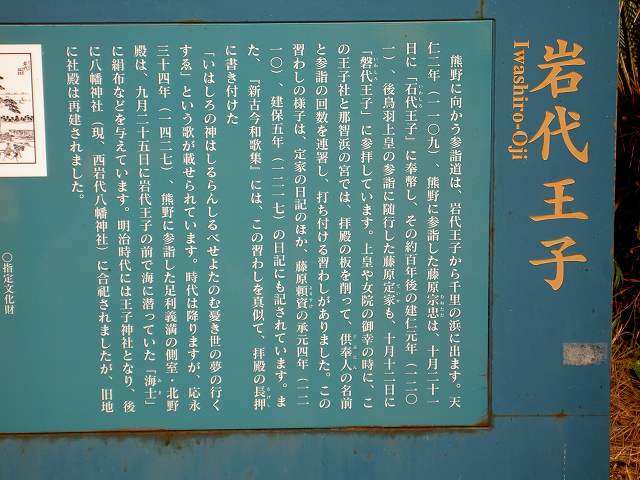 岩代王子
Iwashiro-Oji
熊野に向かう参詣道は、岩代王子から千里の浜に出ます。天
仁二年（一一〇九）、熊野に参詣した藤原宗忠は、十月二十一
日に「石代王子」に奉幣し、その約百年後の建仁元年（一二〇
一）、後鳥羽上皇の参詣に随行した藤原定家も、十月十二日に
「磐代王子」に参拝しています。上皇や女院の御幸の時に、こ
の王子社と那智浜の宮では、拝殿の板を削って、供奉人の名前
と参詣の回数を連署し、打ち付ける習わしがありました。この
習わしの様子は、定家の日記のほか、藤原頼資の承元四年（一二
一〇）、建保五年（一二一七）の日記にも記されています。ま
た、『新古今和歌集』には、この習わしを真似て、拝殿の長押
に書き付けた
「いはしろの神はしるらんしるべせよたのむ憂き世の夢の行く
すゑ」という歌が載せられています。時代は降りますが、応永
三十四年（一四二七）、熊野に参詣した足利義満の側室・北野
殿は、九月二十五日に岩代王子の前で海に潜っていた「海士」
に絹布などを与えています。明治時代には王子神社となり、後
に八幡神社（現、西岩代八幡神社）に合祀されましたが、旧地
に社殿は再建されました。
〇指定文化財